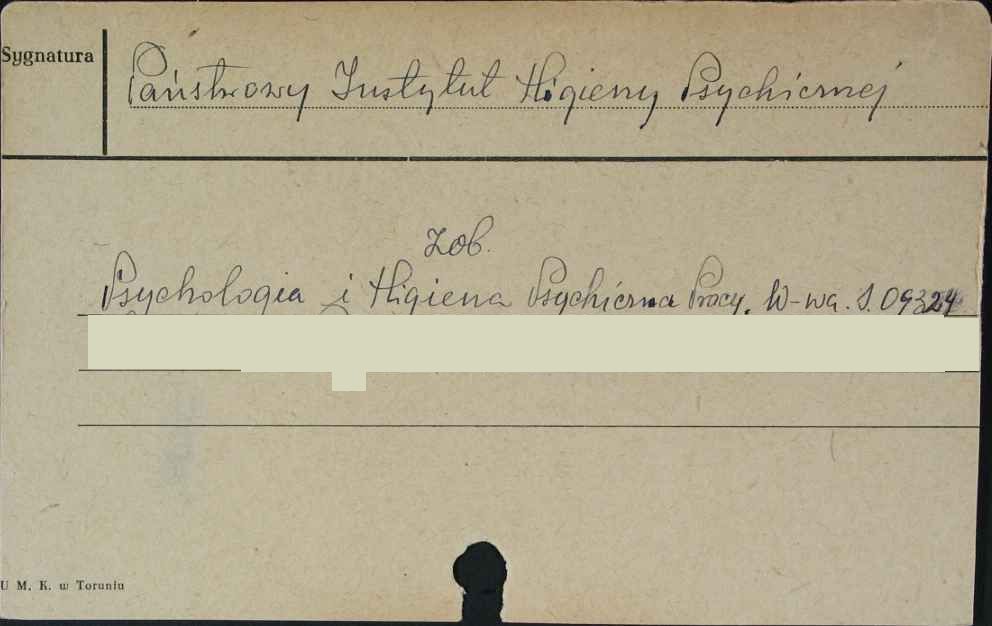 Sygnatura
Państwowy Instytut Higieny Psychicznej
zob.
Psychologia i Higiena Psychiczna Pracy. W-wa. S. 09324
U M. K. w Toruniu